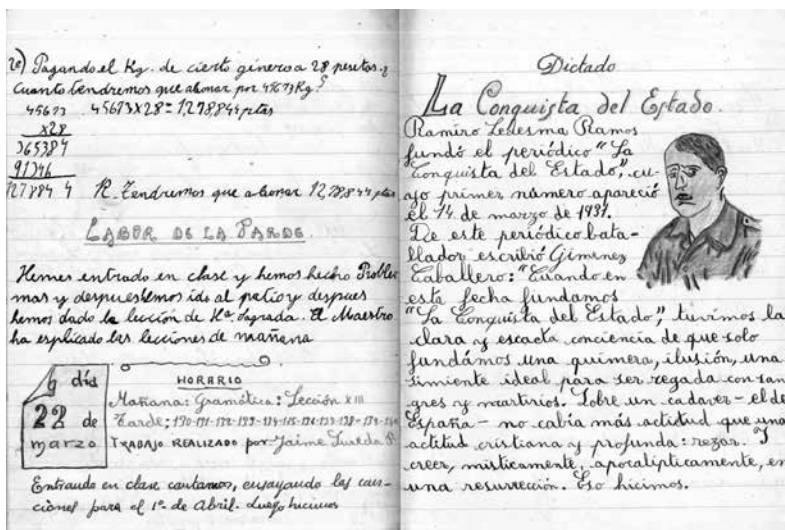 2º) Pagando el Kg. de cierto género a 28 pesetas ¿
cuanto tendremos que abonar por 45673 Kg?
45673 45673x28=1,278,844 ptas
x28
365384
91346
1278844 R. Tendremos que abonar 1,278,844 ptas
LABOR DE LA TARDE.
Hemos entrado en clase y hemos hecho Proble
mas y despues hemos ido al patio y despues
hemos dado la lección de Hª. Sagrada. El Maestro
ha esplicado las lecciones de mañana
día
22 de
marzo
HORARIO
Mañana: Gramática: Lección XIII
Tarde; 130-131-132-133-134-135-136-137-138-
TRABAJO REALIZADO por Jaime
Entrando en clase cantamos, ensayando las can-
ciones para el 1º. de Abril. Luego hicimos
Dictado
La Conquista del Estado.
Ramiro Ledesma Ramos
fundó el periódico "La
Conquista del Estado", cu-
yo primer número apareció
el 14 de marzo de 1931.
De este periódico bata-
llador escribió Gimenez
Caballero: "Cuando en
esta fecha fundamos
"La Conquista del Estado", tuvimos la
clara y escacta conciencia de que solo
fundámos una quimera, ilusión, una
simiente ideal para ser regada con san
gres y martirios. Sobre un cadaver - el de
España - no cabía más actitud que una
actitud cristiana y profunda: rezar. Y
creer, místicamente, apocalípticamente, en
una resurrección. Eso hicimos.